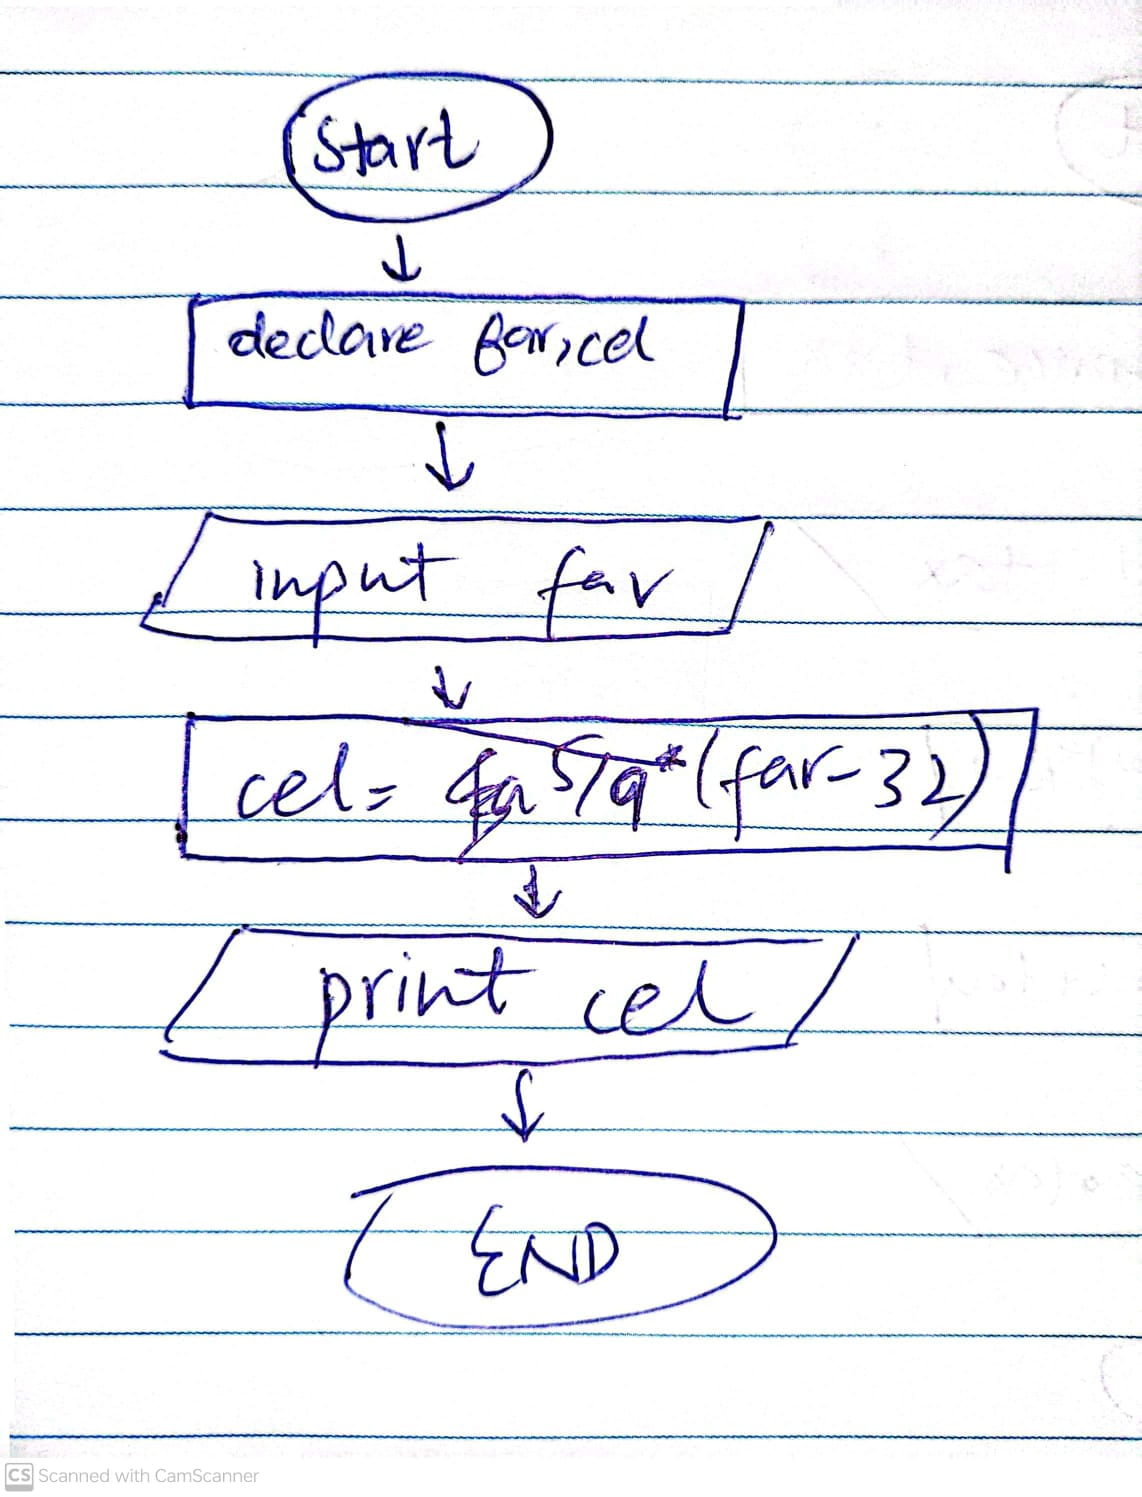 Start
declare far, cel
input far
cel = 5/9*(far-32)
print cel
END
CS Scanned with CamScanner